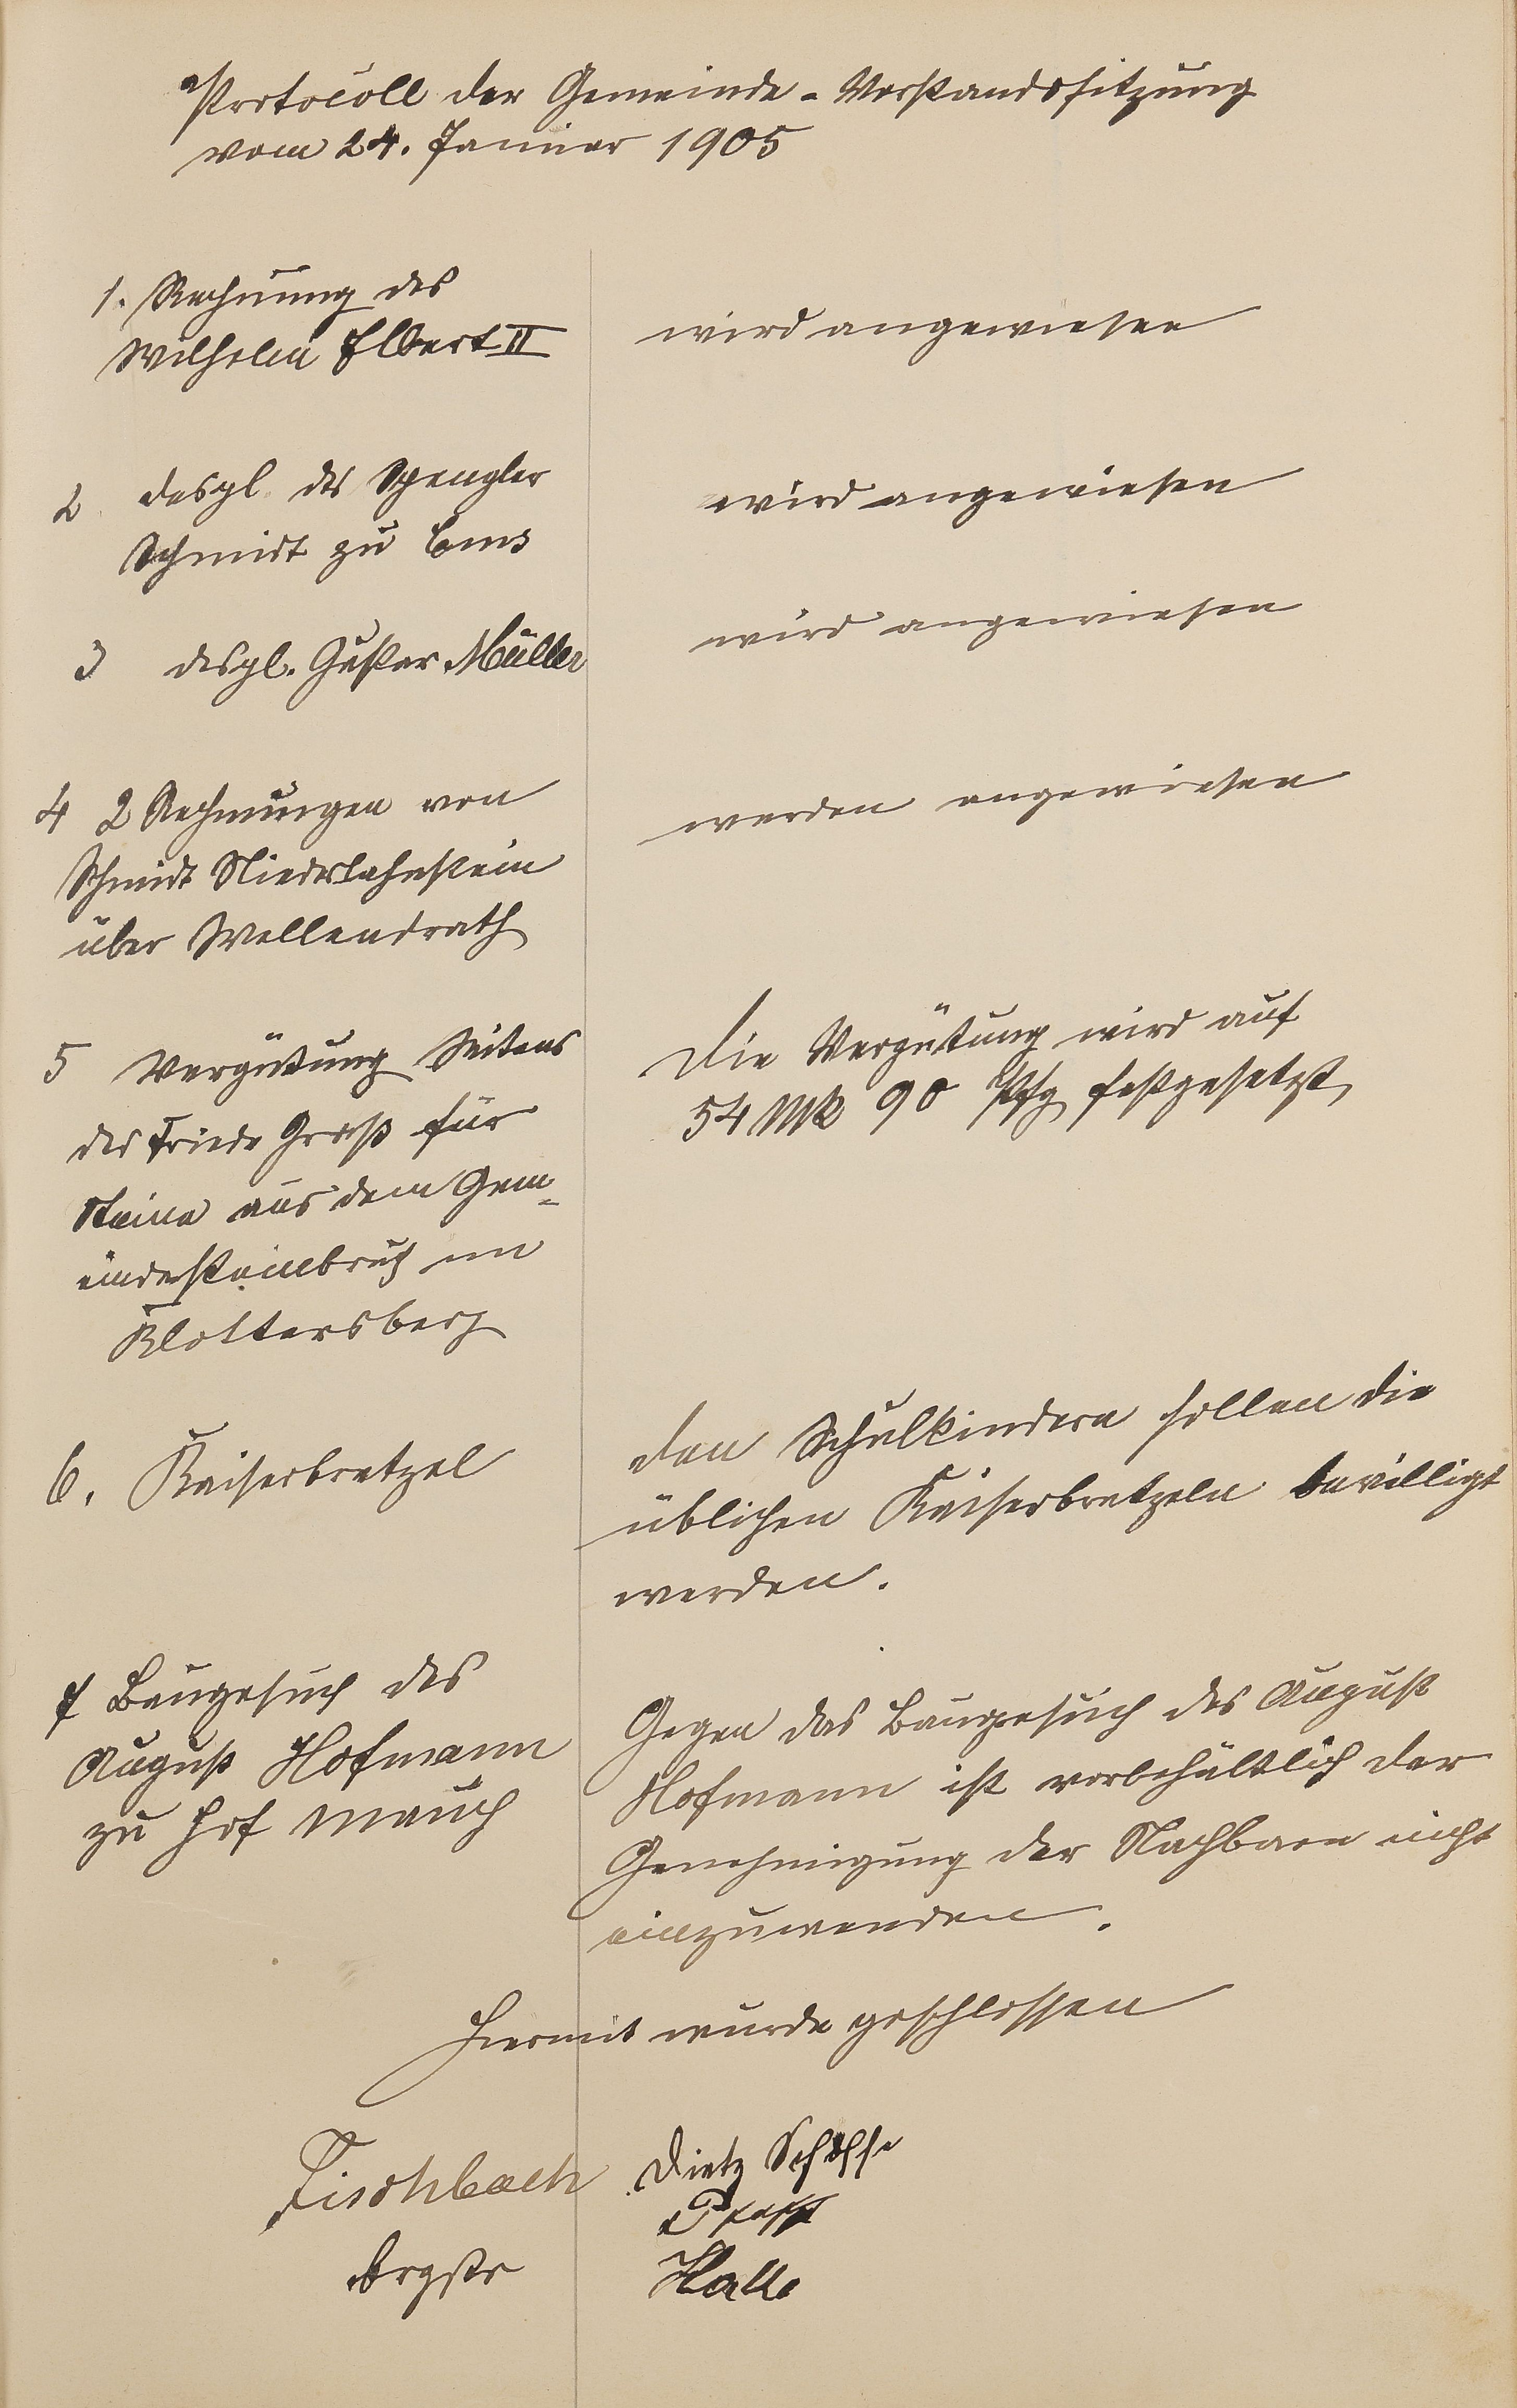 Protocoll der Gemeinde-Vorstandssitzung
vom 24. Januar 1905
1. Rechnung des
Wilhelm Elbert II
wird angewiesen
2 desgl. des Spengler
Schmidt zu Ems
wird angewiesen
3 desgl. Gustav Müller
wird angewiesen
4 2 Rechnungen von
Schmidt Niederlahnstein
über Wellendrath
werden angewiesen
5 Vergütung Seitens
des Friedr Groß für
Steine aus dem Gem-
eindesteinbruch im
Klottersberg
Die Vergütung wird auf
54 Mk 90 Pfg festgesetzt,
6. Kaiserbretzel
den Schulkindern sollen die
üblichen Kaiserbretzeln bewilligt
werden.
7 Baugesuch des
August Hofmann
zu Hof Mauch
Gegen das Baugesuch des August
Hofmann ist vorbehältlich der
Genehmigung der Nachbarn nicht
einzuwenden.
Hiermit wurde geschlossen
Fischbach
Brgstr
Dietz Schöffe
Pfaff
Halle